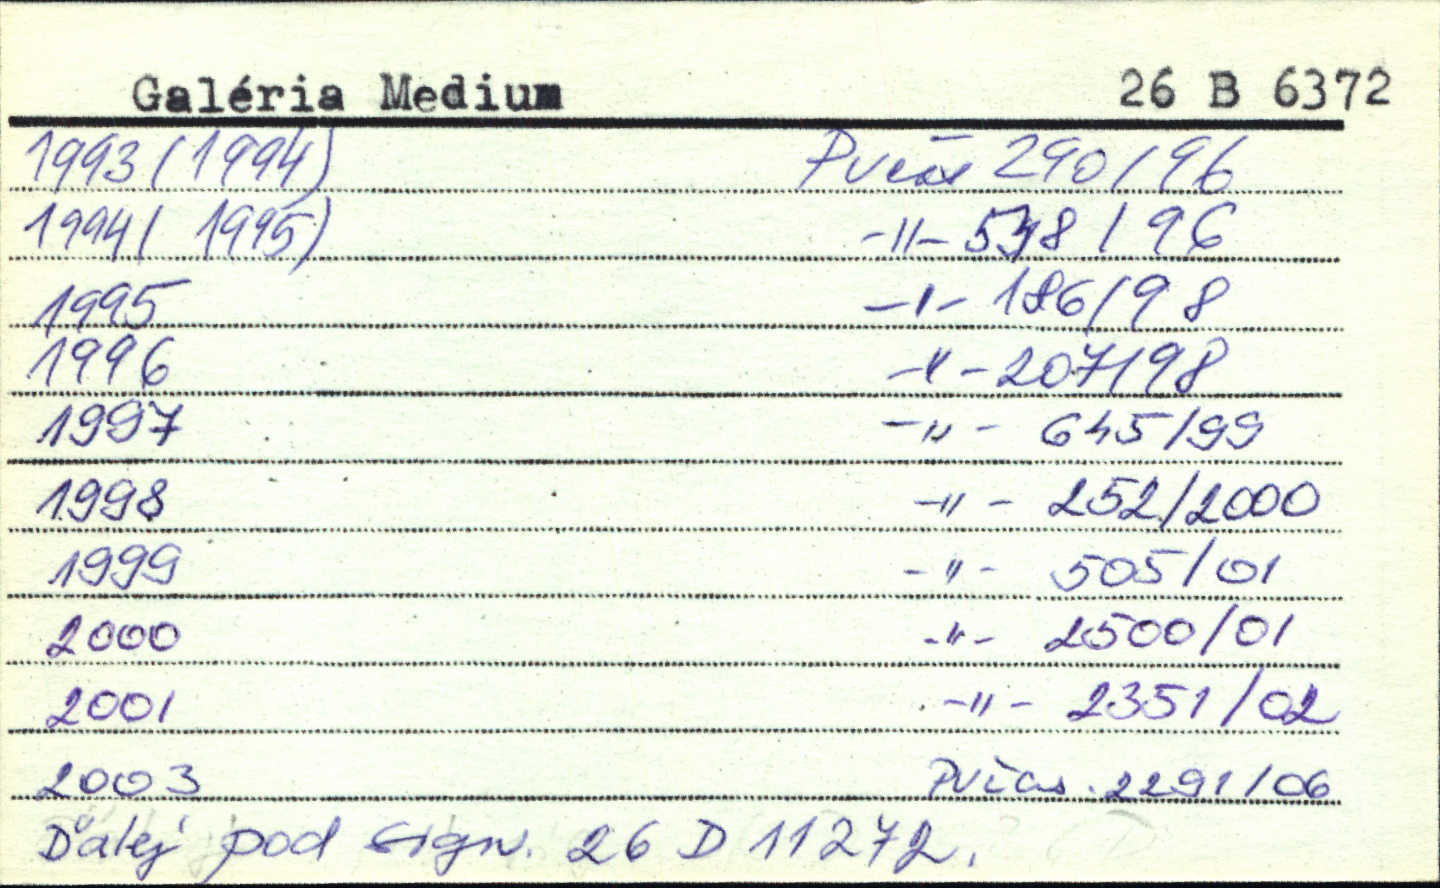 Galéria Medium 26 B 6372
1993 (1994) PVčas 290/96
1994 ( 1995) -"- 598 / 96
1995 -"- 186/98
1996 -"- 207/98
1997 -"- 645/99
1998 -"- 252/2000
1999 -"- 505/01
2000 -"- 2500/01
2001 -"- 2351/02
2003 PVčas. 2291/06
Ďalej pod sign. 26 D 11272.